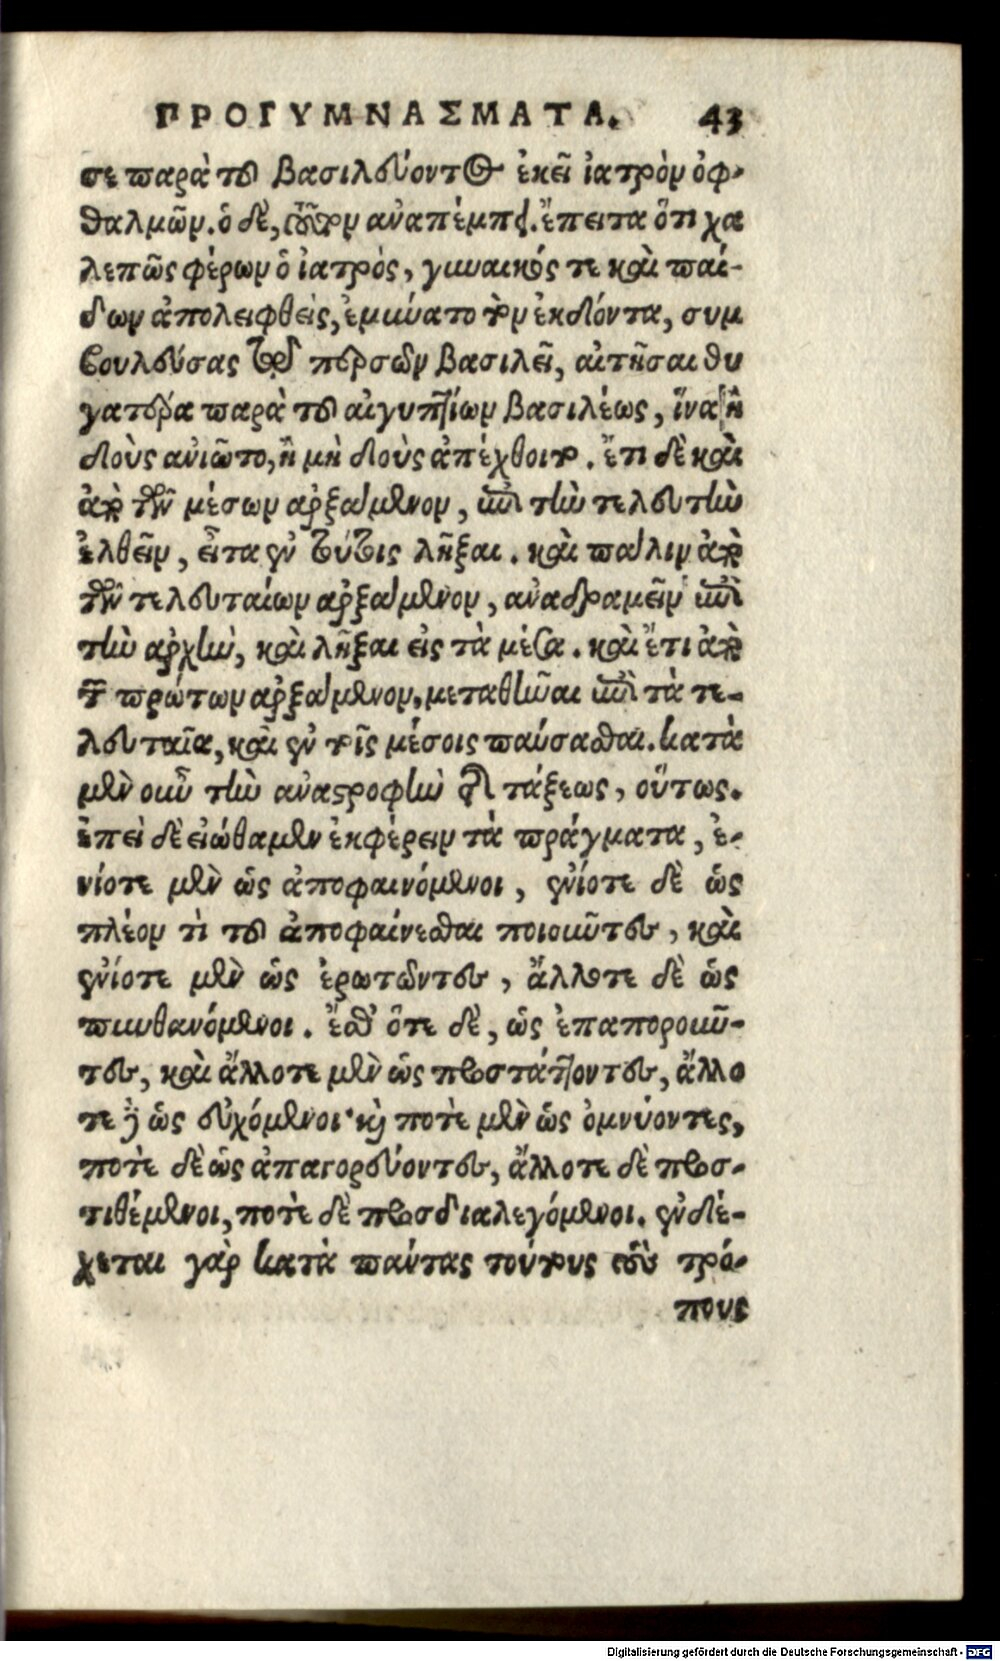 ΠΡΟΓΥΜΝΑΣΜΑΤΑ. 43
σε παρὰ τοῦ βασιλεύοντος ἐκεῖ ἰατρὸν ὀφ-
θαλμῶν. ὁ δὲ, τοῦτον ἀναπέμπει. ἔπειτα ὅτι χα
λεπῶς φέρων ὁ ἰατρὸς, γυναικός τε καὶ παί-
δων ἀπολειφθεὶς, ἐμηνύατο τὸν ἐκδόντα, συμ
βουλεύσας τῷ περσῶν βασιλεῖ, αἰτῆσαι θυ
γατέρα παρὰ τοῦ αἰγυπτίων βασιλέως, ἵνα ἢ
δοὺς ἀνιῶτο, ἢ μὴ δοὺς ἀπέχθοιτο. ἔτι δὲ καὶ
ἀπὸ τῶν μέσων ἀρξάμενον, ἐπὶ τὴν τελευτὴν
ἐλθεῖν, εἶτα ἐν τούτοις λῆξαι. καὶ πάλιν ἀπὸ
τῶν τελευταίων ἀρξάμενον, ἀναδραμεῖν ἐπὶ
τὴν ἀρχὴν, καὶ λῆξαι εἰς τὰ μέσα. καὶ ἔτι ἀπὸ
τῶν πρώτων ἀρξάμενον, μεταθῆναι ἐπὶ τὰ τε-
λευταῖα, καὶ ἐν τοῖς μέσοις παύσασθαι. κατὰ
μὲν οὖν τὴν ἀναστροφὴν τῆς τάξεως, οὕτως.
ἐπεὶ δὲ εἰώθαμεν ἐκφέρειν τὰ πράγματα, ἐ-
νίοτε μὲν ὡς ἀποφαινόμενοι, ἐνίοτε δὲ ὡς
πλέον τὶ τοῦ ἀποφαίνεσθαι ποιοῦντες, καὶ
ἐνίοτε μὲν ὡς ἐρωτῶντες, ἄλλοτε δὲ ὡς
πυνθανόμενοι. ἔσθ' ὅτε δὲ, ὡς ἐπαποροῦν-
τες, καὶ ἄλλοτε μὲν ὡς προστάττοντες, ἄλλο
τε δὲ ὡς εὐχόμενοι· καὶ ποτὲ μὲν ὡς ὀμνύοντες,
ποτὲ δὲ ὡς ἀπαγορεύοντες, ἄλλοτε δὲ προσ-
τιθέμενοι, ποτὲ δὲ προσδιαλεγόμενοι. ἐνδέ-
χεται γὰρ κατὰ πάντας τούτους τοὺς τρό-
πους
Digitalisierung gefördert durch die Deutsche Forschungsgemeinschaft - DFG